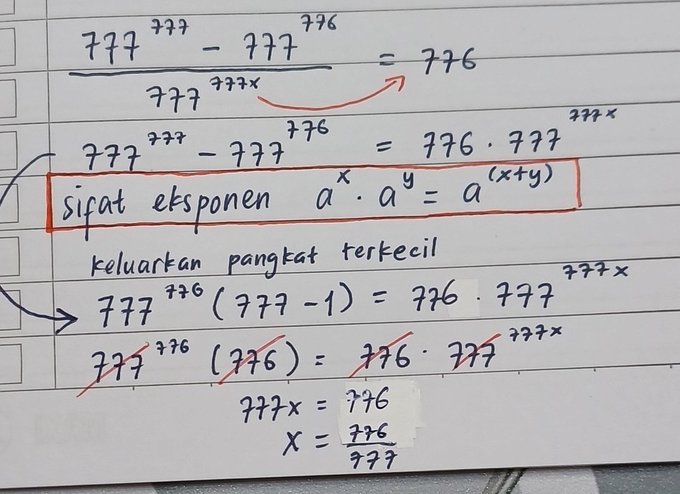 777^777 - 777^776 / 777^777x = 776
777^777 - 777^776 = 776 · 777^777x
sifat eksponen a^x · a^y = a^(x+y)
keluarkan pangkat terkecil
777^776 (777 - 1) = 776 · 777^777x
777^776 (776) = 776 · 777^777x
777x = 776
x = 776/777